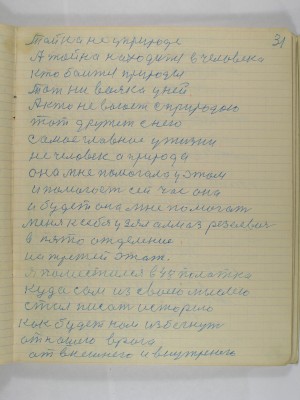 31
Тайна не уприроде
А тайна находитя в человека
кто боитя природы
тот ни всяка дней
А кто не воюет с природою
тот дружит с нею
самое главное у жизни
не человек а природа
она мне помогала у этом
и помогает сей час она
и будет она мне помогат
меня к себя узял алмаз
в пято отделение.
на пустей этаж.
Я поместился в 45
куда сам из своею
стал писат историю
как будет нам избегнут
от нашего врага
от внешнего и внутрнего